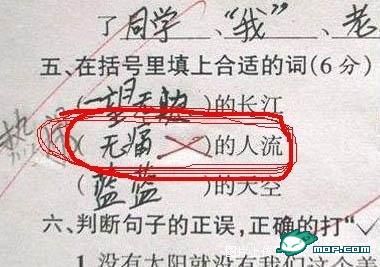 了同学、“我”、老
五、在括号里填上合适的词(6分)
(一望无际)的长江
(无痛)的人流
(蓝蓝)的天空
六、判断句子的正误,正确的打“✓
1.没有太阳就没有我们这个美
MOP.COM